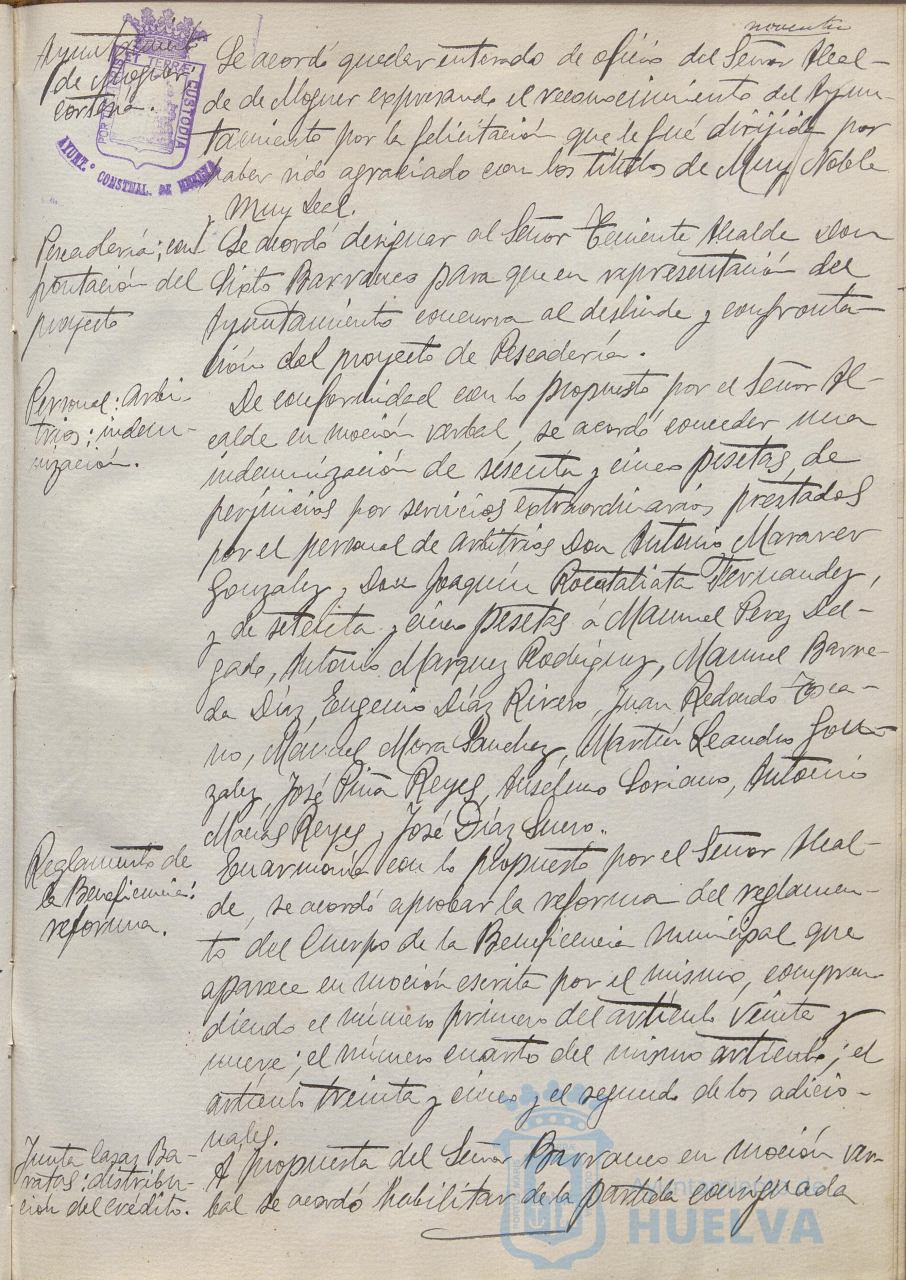 noventa
Ayuntamiento
de Moguer:
cortesía.
PORTUS MARIS ET TERRAE CUSTODIA
AYUNT.º CONSTNAL. DE HUELVA
Se acordó quedar enterado de oficio del Señor Alcal-
de de Moguer expresando el reconocimiento del Ayun
tamiento por la felicitación que le fué dirijida por
haber sido agraciado con los títulos de Muy Noble
y Muy Leal.
Pescadería; con
frontación del
proyecto
Se acordó designar al Señor Teniente Alcalde Don
Sixto Barranco para que en representación del
Ayuntamiento concurra al deslinde y confronta-
ción del proyecto de Pescadería.
Personal: Arbi-
trios: indem-
nización.
De conformidad con lo propuesto por el Señor Al-
calde en moción verbal, se acordó conceder una
indemnización de sesenta y cinco pesetas de
perjuicios por servicios extraordinarios prestados
por el personal de arbitrios Don Antonio Maraver
Gonzalez y Don Joaquín Rocatallata Fernandez,
y de setenta y cinco pesetas á Manuel Perez Del-
gado, Antonio Marquez Rodriguez, Manuel Barre-
da Díaz, Eugenio Díaz Rivero, Juan Redondo Tosca-
no, Manuel Mora Sanchez, Martín Leandro Gon-
zalez, José Piña Reyes, Anselmo Soriano, Antonio
Macías Reyes y José Díaz Suero.
Reglamento de
la Beneficencia:
reforma.
En armonía con lo propuesto por el Señor Alcal-
de, se acordó aprobar la reforma del reglamen-
to del Cuerpo de la Beneficencia municipal que
aparece en moción escrita por el mismo, compren
diendo el número primero del artículo veinte y
nueve; el número cuarto del mismo artículo; el
artículo treinta y cinco y el segundo de los adicio-
nales.
Junta Casas Ba-
ratas: distribu-
ción del crédito.
A propuesta del Señor Barranco en moción ver-
bal se acordó habilitar de la partida consignada
Ayuntamiento de
HUELVA